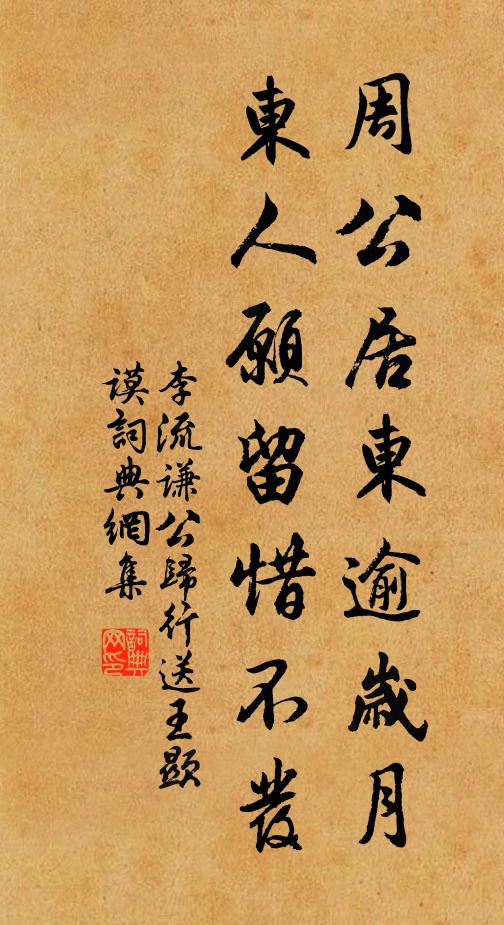 周公居東逾歲月
東人願留惜不發
李流谦公歸行送王顯
謨詞典網集
詞典网印